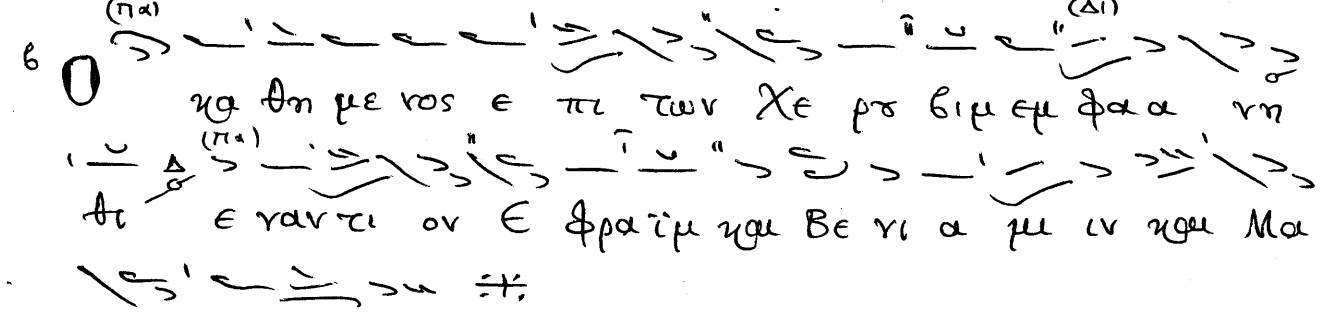 (Πα) (Δι)
β Ο κα θη με νος ε πι των Χε ρου βιμ εμ φα α νη
Δ (Πα)
θι ε ναν τι ον Ε φρα ϊμ και Βε νι α μι ιν και Μα